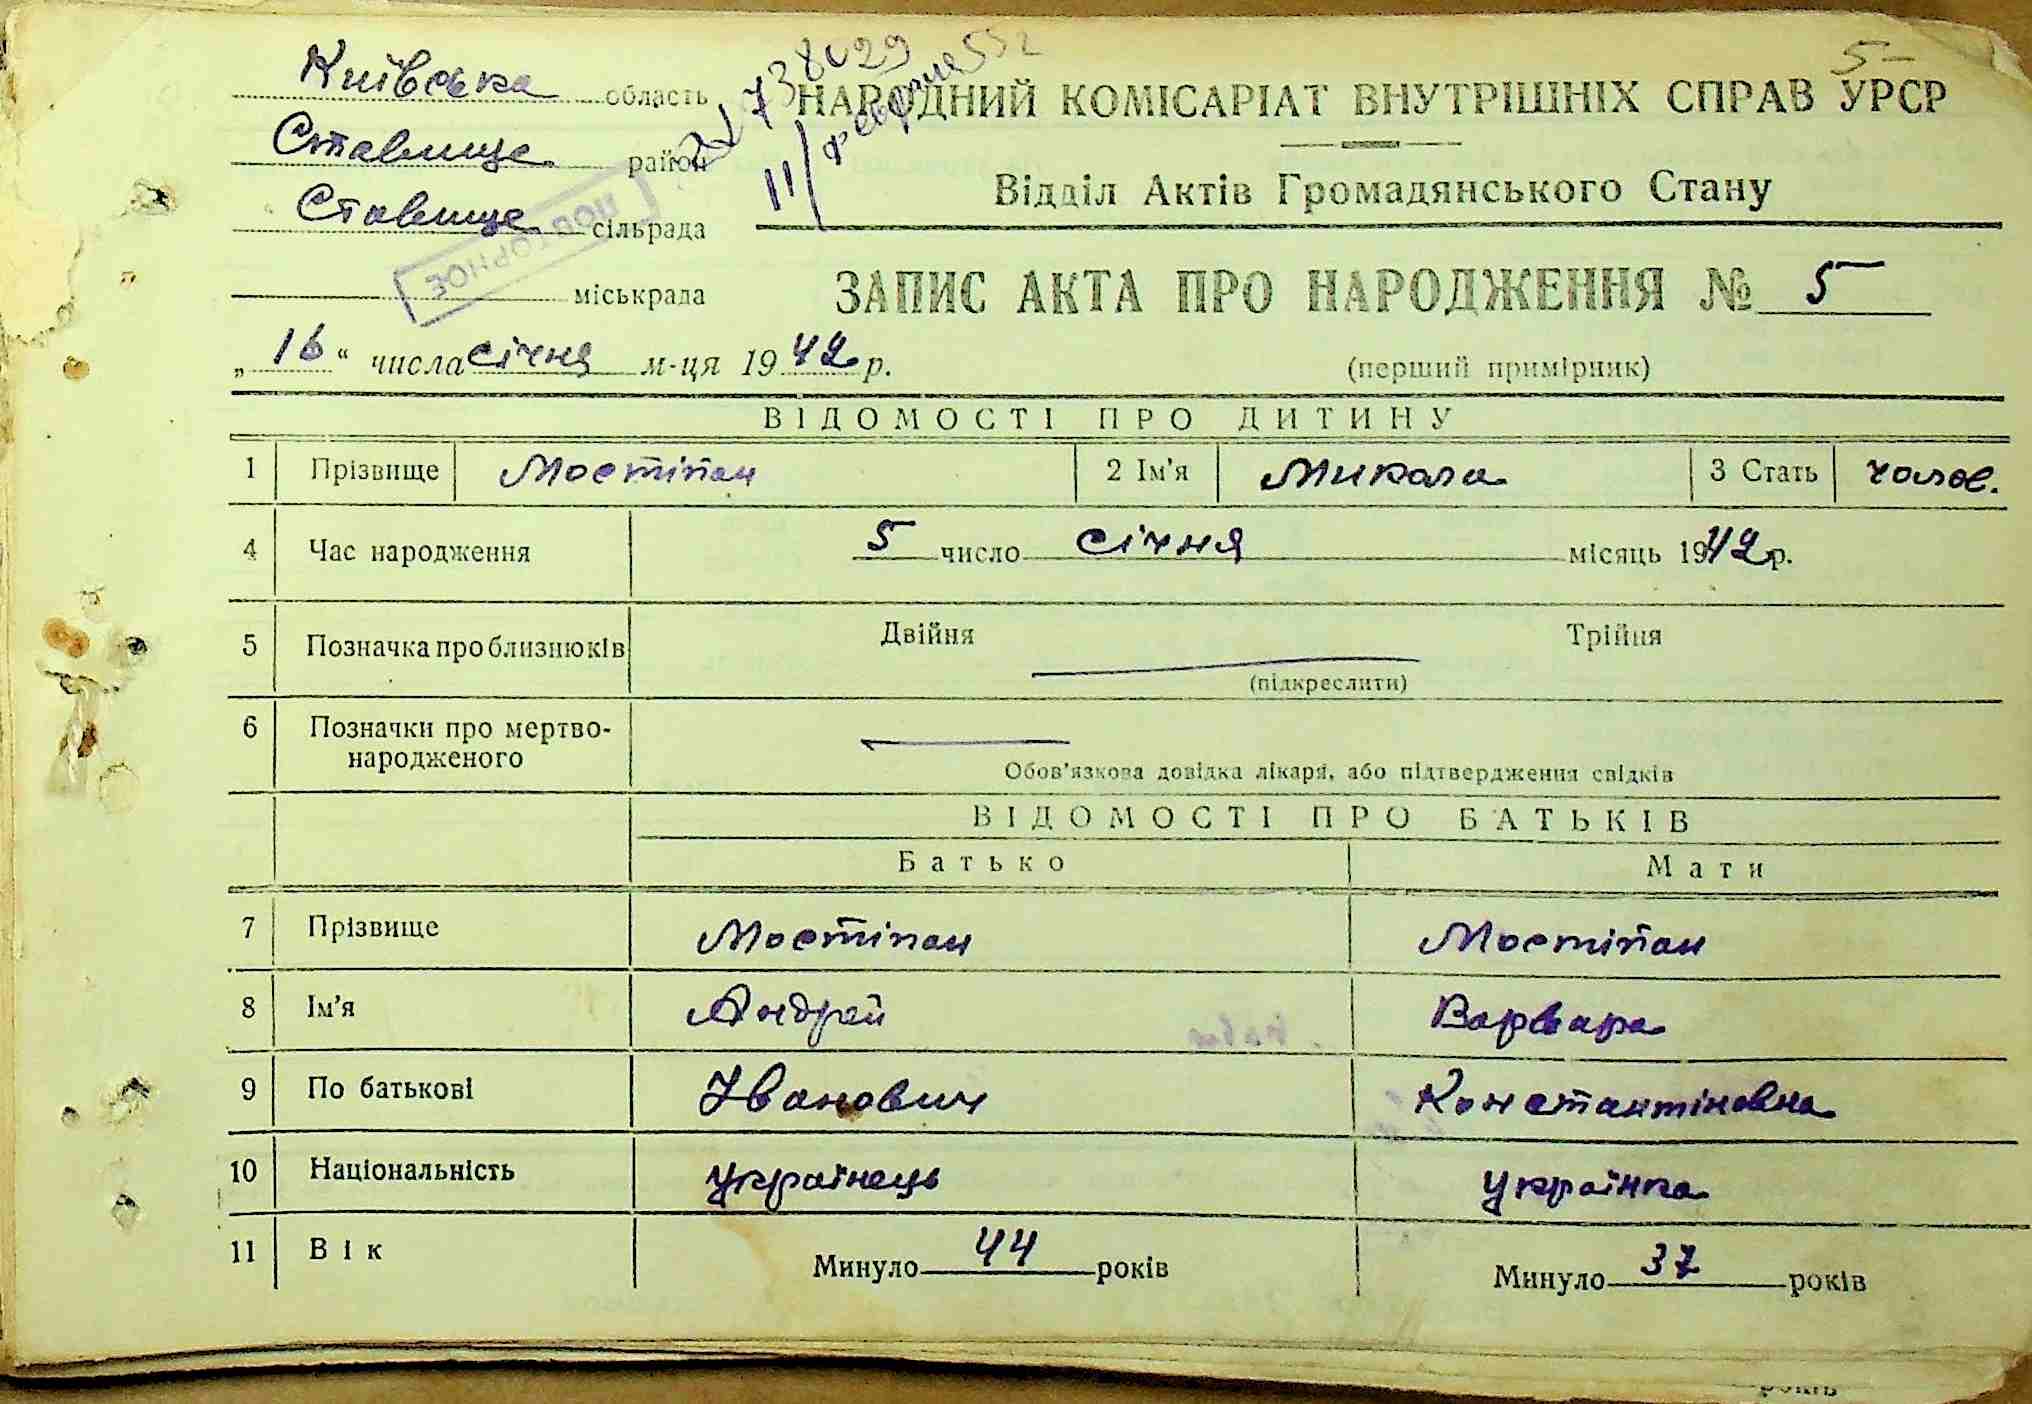 5-
738029
11/ февраля 55 г
Київська область
Ставище район
Ставище сільрада
міськрада
ПОВТОРНОЕ
НАРОДНИЙ КОМІСАРІАТ ВНУТРІШНІХ СПРАВ УРСР
Відділ Актів Громадянського Стану
ЗАПИС АКТА ПРО НАРОДЖЕННЯ № 5
„16“ числа січня м-ця 1942 р.
(перший примірник)
ВІДОМОСТІ ПРО ДИТИНУ
1 Прізвище Мостіпан 2 Ім'я Микола 3 Стать чолов.
4 Час народження 5 число січня місяць 1942 р.
5 Позначка про близнюків Двійня Трійня
(підкреслити)
6 Позначки про мертво-
народженого
Обов'язкова довідка лікаря, або підтвердження свідків
ВІДОМОСТІ ПРО БАТЬКІВ
Батько Мати
7 Прізвище Мостіпан Мостіпан
8 Ім'я Андрей Варвара
9 По батькові Іванович Константіновна
10 Національність українець українка
11 Вік Минуло 44 років Минуло 37 років
років